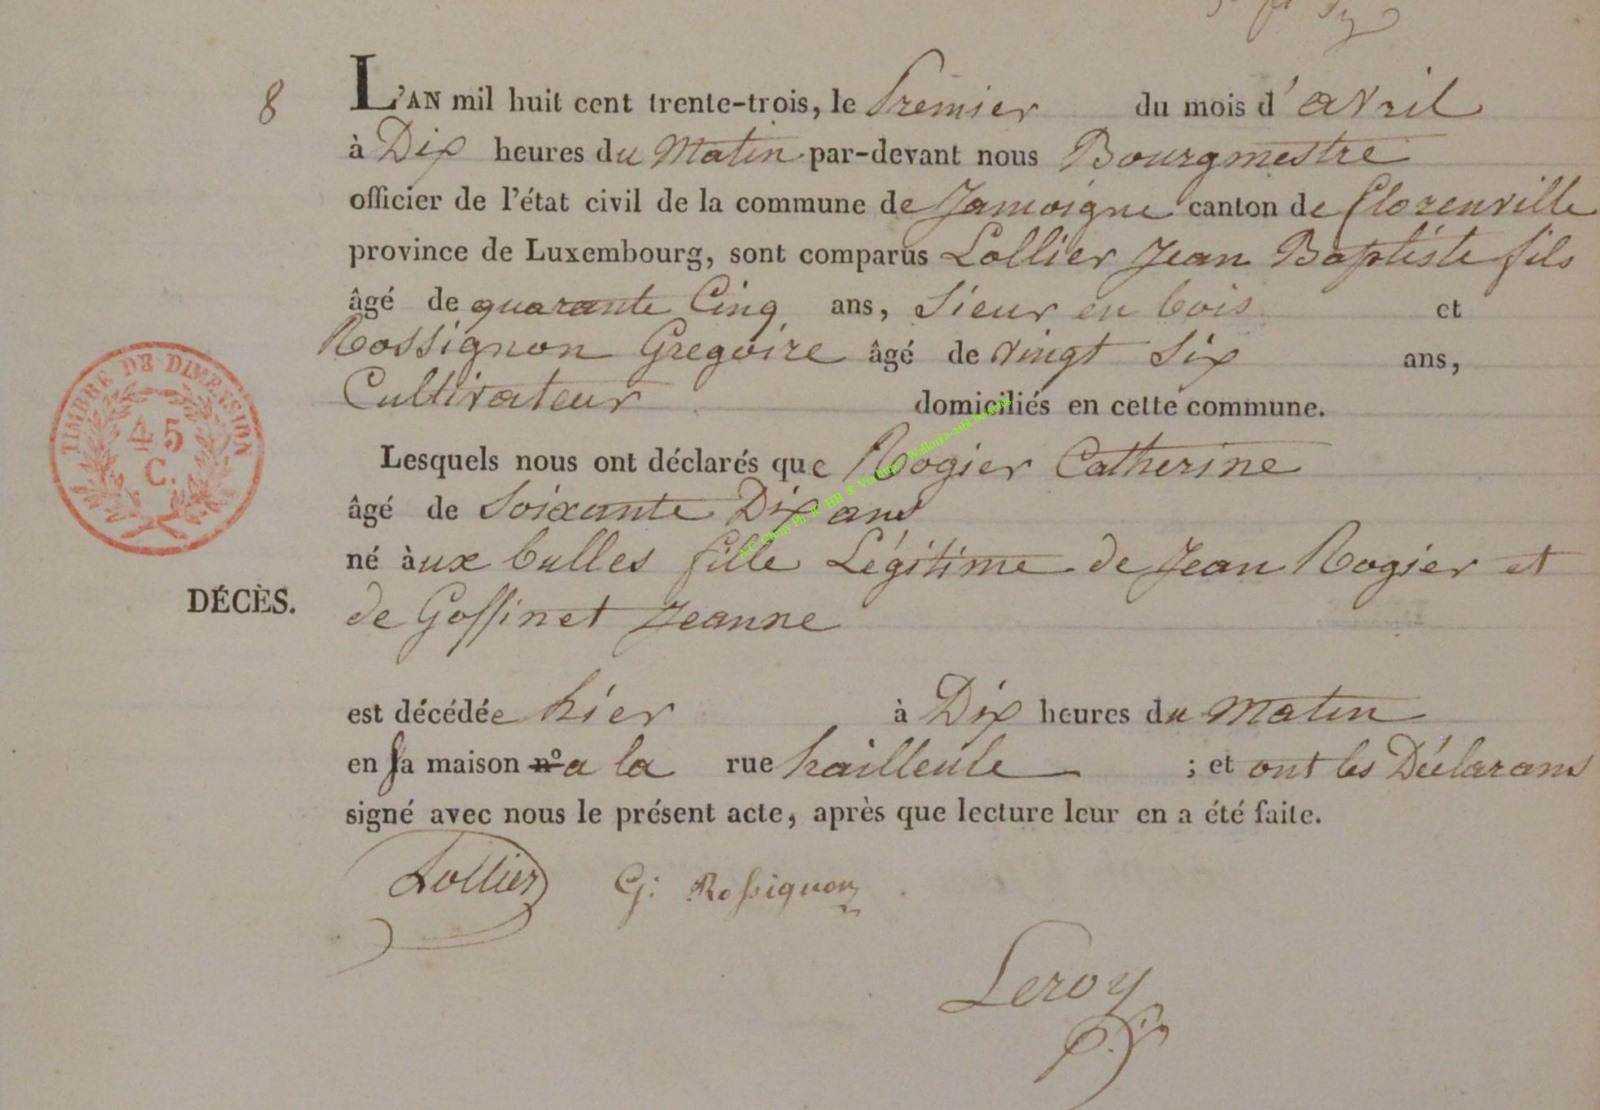 8
L'AN mil huit cent trente-trois, le Premier du mois d'avril
à Dix heures du Matin par-devant nous Bourgmestre
officier de l'état civil de la commune de Jamoigne canton de florenville
province de Luxembourg, sont comparus Lollier Jean Baptiste fils
âgé de quarante Cinq ans, Sieur en bois et
Rossignon Gregoire âgé de vingt Six ans,
Cultivateur domiciliés en cette commune.
Lesquels nous ont déclarés que Rogier Catherine
âgé de Soixante Dix ans
né àux bulles fille Légitime de Jean Rogier et
de Goffinet Jeanne
est décédée hier à Dix heures du Matin
en sa maison n° a la rue hailleule ; et ont les Déclarans
signé avec nous le présent acte, après que lecture leur en a été faite.
DÉCÈS.
TIMBRE DE DIMENSION
45
C.
Lollier G: Rossignon
Leroy